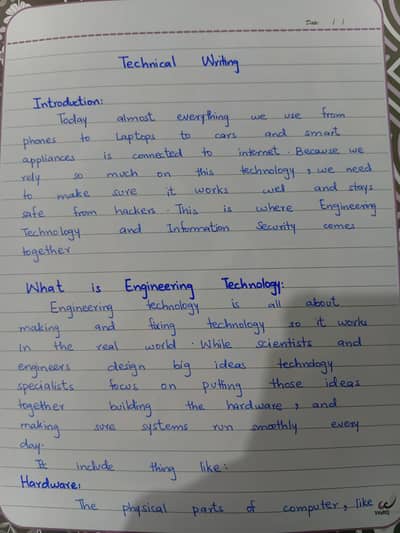 Date: / /
Technical Writing
Introduction:
Today almost everything we use from
phones to Laptops to cars and smart
appliances is connected to internet. Because we
rely so much on this technology, we need
to make sure it works well and stays
safe from hackers. This is where Engineering
Technology and Information Security comes
together
What is Engineering Technology:
Engineering technology is all about
making and fixing technology so it works
in the real world. While scientists and
engineers design big ideas technology
specialists focus on putting those ideas
together building the hardware, and
making sure systems run smoothly every
day.
It include thing like:
Hardware:
The physical parts of computer, like